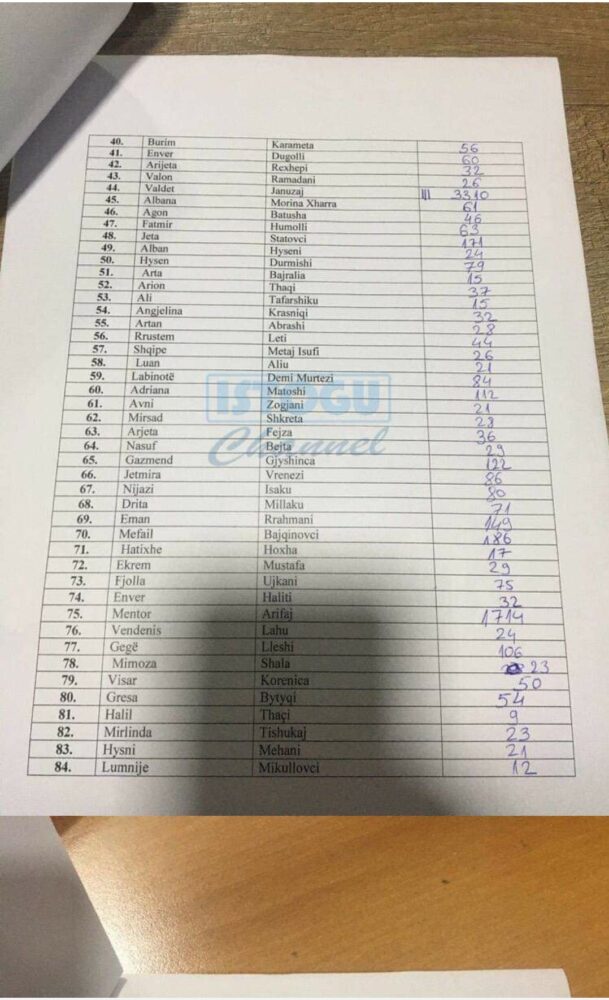 40. Burim Karameta 56
41. Enver Dugolli 60
42. Arijeta Rexhepi 32
43. Valon Ramadani 26
44. Valdet Januzaj III 3310
45. Albana Morina Xharra 61
46. Agon Batusha 46
47. Fatmir Humolli 63
48. Jeta Statovci 171
49. Alban Hyseni 24
50. Hysen Durmishi 79
51. Arta Bajralia 15
52. Arion Thaqi 37
53. Ali Tafarshiku 15
54. Angjelina Krasniqi 32
55. Artan Abrashi 28
56. Rrustem Leti 44
57. Shqipe Metaj Isufi 26
58. Luan Aliu 21
59. Labinotë Demi Murtezi 84
60. Adriana Matoshi 112
61. Avni Zogjani 21
62. Mirsad Shkreta 28
63. Arjeta Fejza 36
64. Nasuf Bejta 29
65. Gazmend Gjyshinca 122
66. Jetmira Vrenezi 86
67. Nijazi Isaku 80
68. Drita Millaku 71
69. Eman Rrahmani 149
70. Mefail Bajqinovci 186
71. Hatixhe Hoxha 17
72. Ekrem Mustafa 29
73. Fjolla Ujkani 75
74. Enver Haliti 32
75. Mentor Arifaj 1714
76. Vendenis Lahu 24
77. Gegë Lleshi 106
78. Mimoza Shala 23
79. Visar Korenica 50
80. Gresa Bytyqi 54
81. Halil Thaçi 9
82. Mirlinda Tishukaj 23
83. Hysni Mehani 21
84. Lumnije Mikullovci 12
ISTOGU
Channel